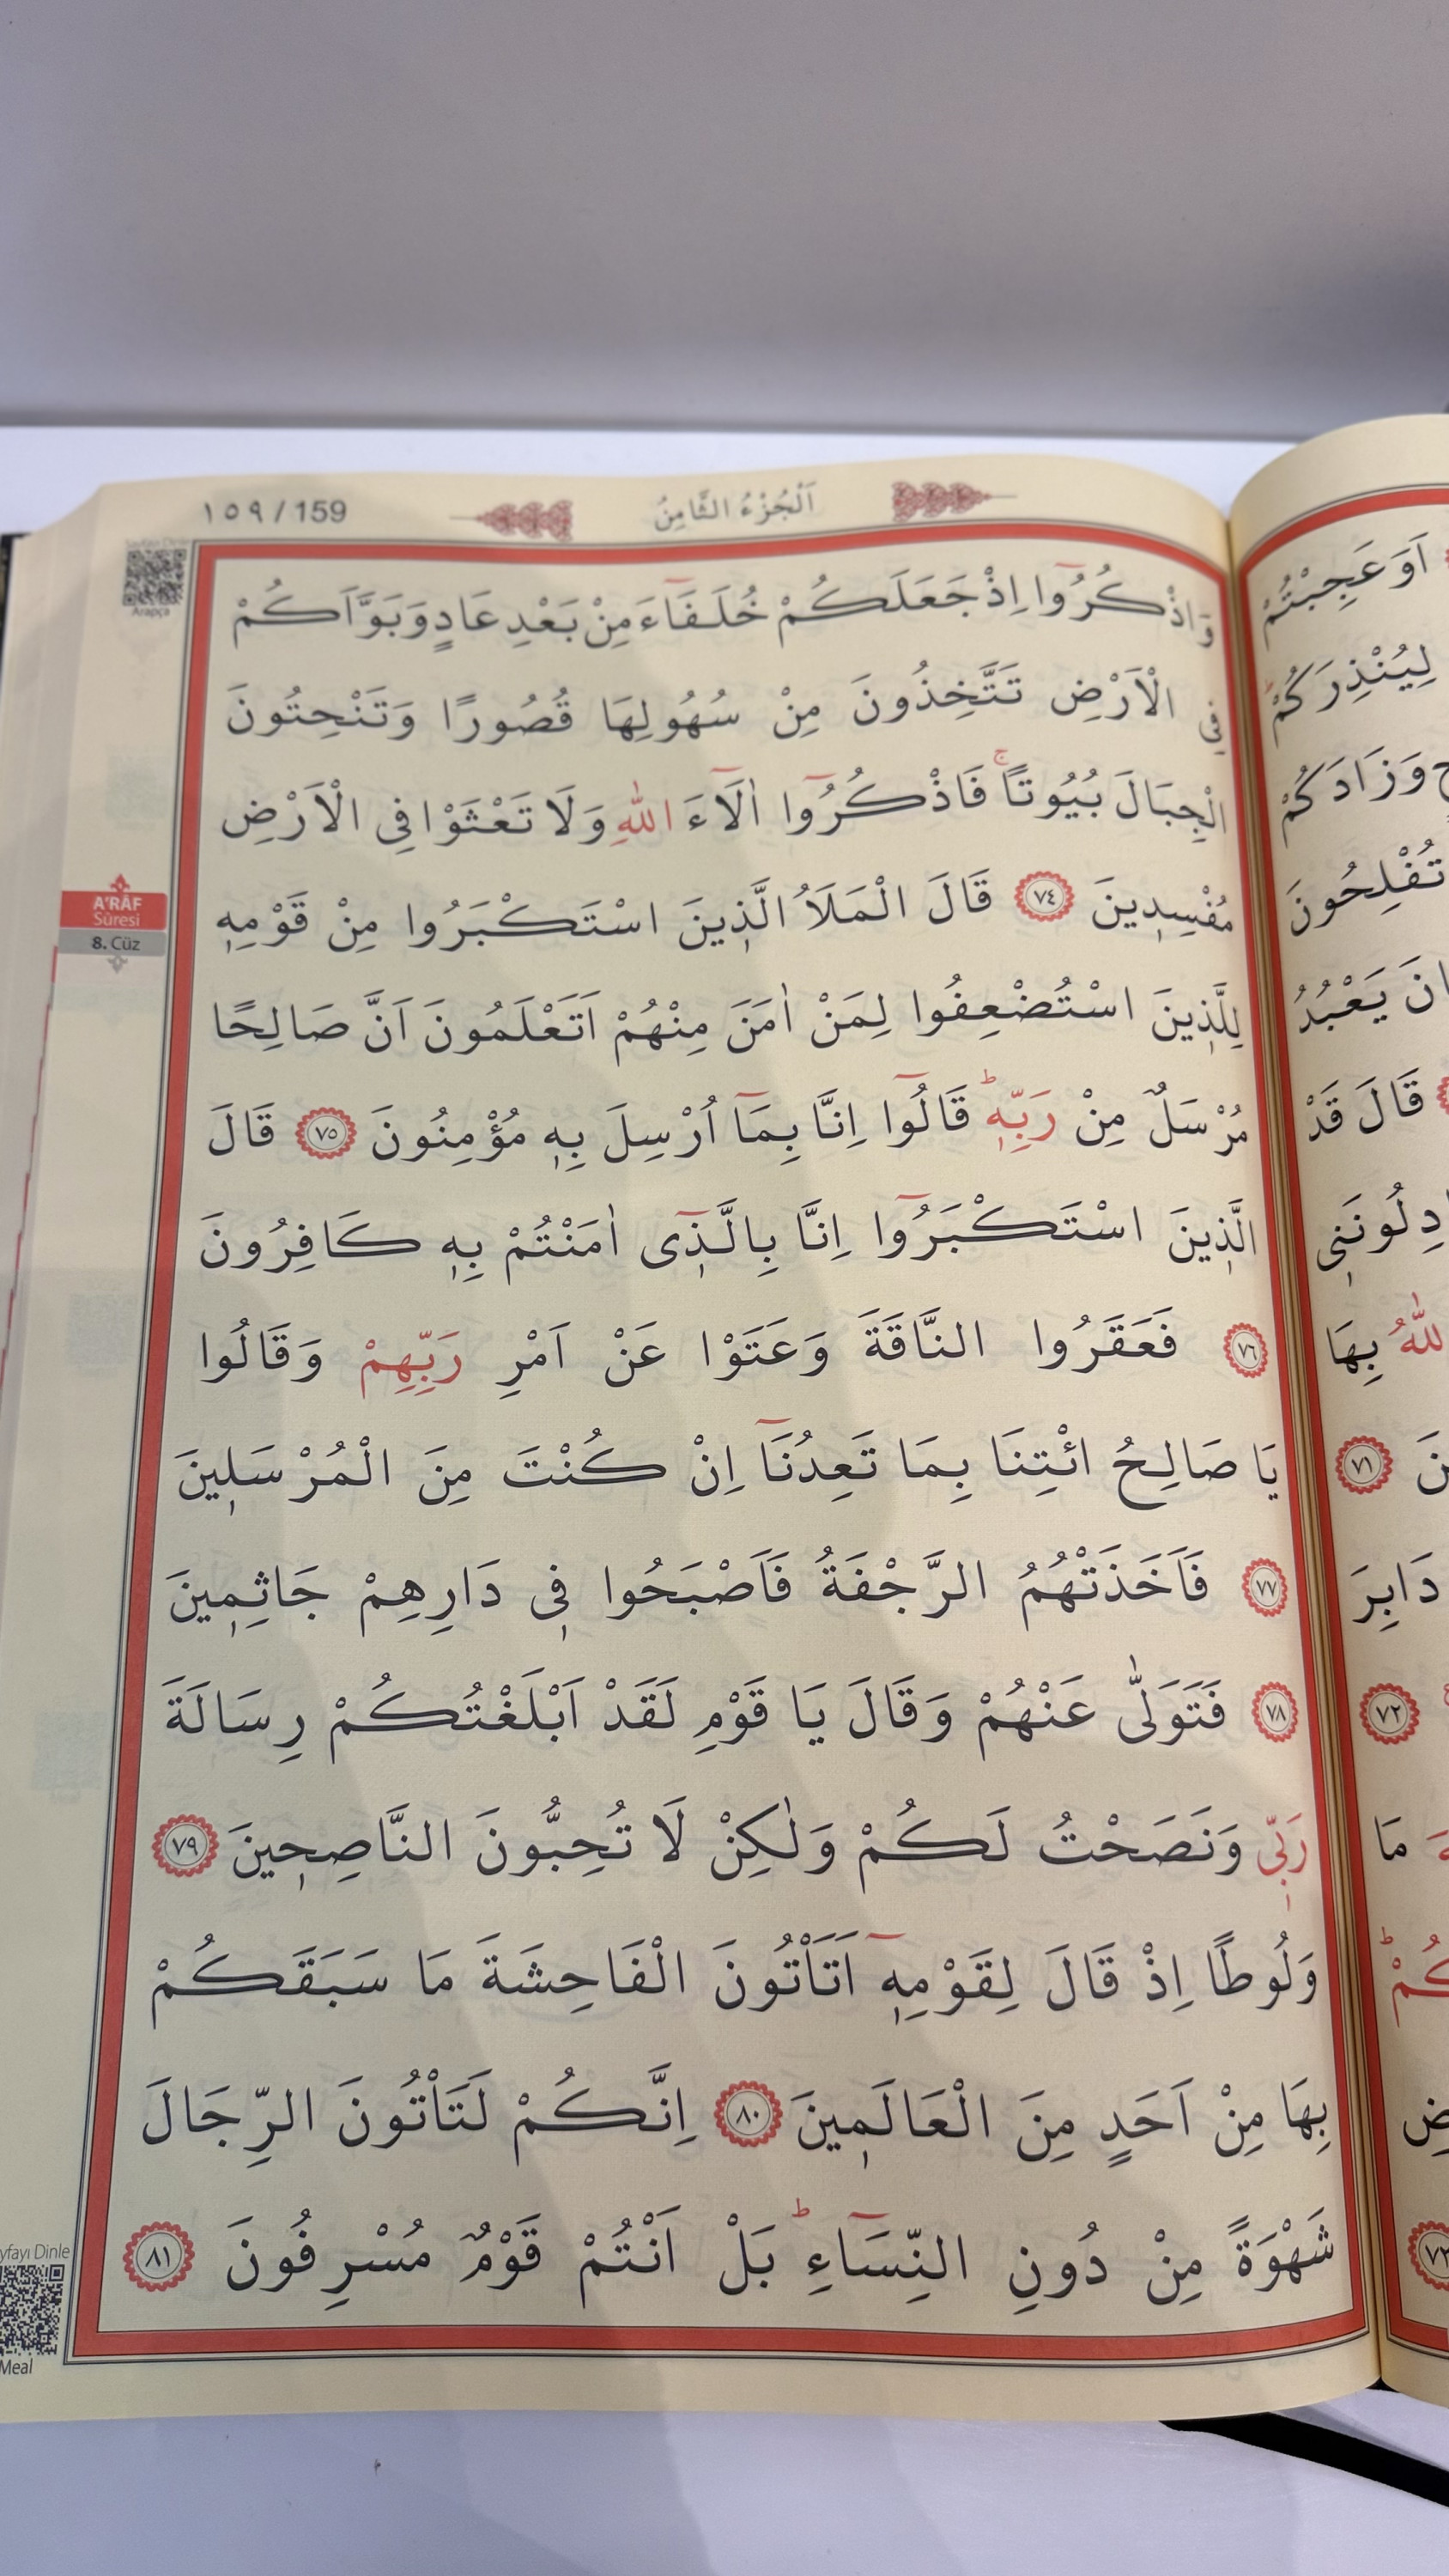 ١٥٩ / 159
اَلْجُزْءُ الثَّامِنُ
Arapça
وَاذْكُرُٓوا اِذْ جَعَلَكُمْ خُلَفَٓاءَ مِنْ بَعْدِ عَادٍ وَبَوَّاَكُمْ
فِي الْاَرْضِ تَتَّخِذُونَ مِنْ سُهُولِهَا قُصُورًا وَتَنْحِتُونَ
الْجِبَالَ بُيُوتًاۚ فَاذْكُرُٓوا اٰلَٓاءَ اللّٰهِ وَلَا تَعْثَوْا فِي الْاَرْضِ
مُفْسِد۪ينَ ﴿٧٤﴾ قَالَ الْمَلَاُ الَّذ۪ينَ اسْتَكْبَرُوا مِنْ قَوْمِه۪
لِلَّذ۪ينَ اسْتُضْعِفُوا لِمَنْ اٰمَنَ مِنْهُمْ اَتَعْلَمُونَ اَنَّ صَالِحًا
مُرْسَلٌ مِنْ رَبِّه۪ؕ قَالُٓوا اِنَّا بِمَٓا اُرْسِلَ بِه۪ مُؤْمِنُونَ ﴿٧٥﴾ قَالَ
الَّذ۪ينَ اسْتَكْبَرُٓوا اِنَّا بِالَّذ۪ٓى اٰمَنْتُمْ بِه۪ كَافِرُونَ
﴿٧٦﴾ فَعَقَرُوا النَّاقَةَ وَعَتَوْا عَنْ اَمْرِ رَبِّهِمْ وَقَالُوا
يَا صَالِحُ ائْتِنَا بِمَا تَعِدُنَٓا اِنْ كُنْتَ مِنَ الْمُرْسَل۪ينَ
﴿٧٧﴾ فَاَخَذَتْهُمُ الرَّجْفَةُ فَاَصْبَحُوا ف۪ى دَارِهِمْ جَاثِم۪ينَ
﴿٧٨﴾ فَتَوَلّٰى عَنْهُمْ وَقَالَ يَا قَوْمِ لَقَدْ اَبْلَغْتُكُمْ رِسَالَةَ
رَبّ۪ى وَنَصَحْتُ لَكُمْ وَلٰكِنْ لَا تُحِبُّونَ النَّاصِح۪ينَ ﴿٧٩﴾
وَلُوطًا اِذْ قَالَ لِقَوْمِه۪ٓ اَتَاْتُونَ الْفَاحِشَةَ مَا سَبَقَكُمْ
بِهَا مِنْ اَحَدٍ مِنَ الْعَالَم۪ينَ ﴿٨٠﴾ اِنَّكُمْ لَتَاْتُونَ الرِّجَالَ
شَهْوَةً مِنْ دُونِ النِّسَٓاءِؕ بَلْ اَنْتُمْ قَوْمٌ مُسْرِفُونَ ﴿٨١﴾
A'RÂF
Sûresi
8. Cüz
Dinle
Meal
اَوَ عَجِبْتُمْ
لِيُنْذِرَكُمْ
وَزَادَكُمْ
تُفْلِحُونَ
يَعْبُدُ
قَالَ قَدْ
بِهَا
﴿٧١﴾
دَابِرَ
﴿٧٢﴾
مَا